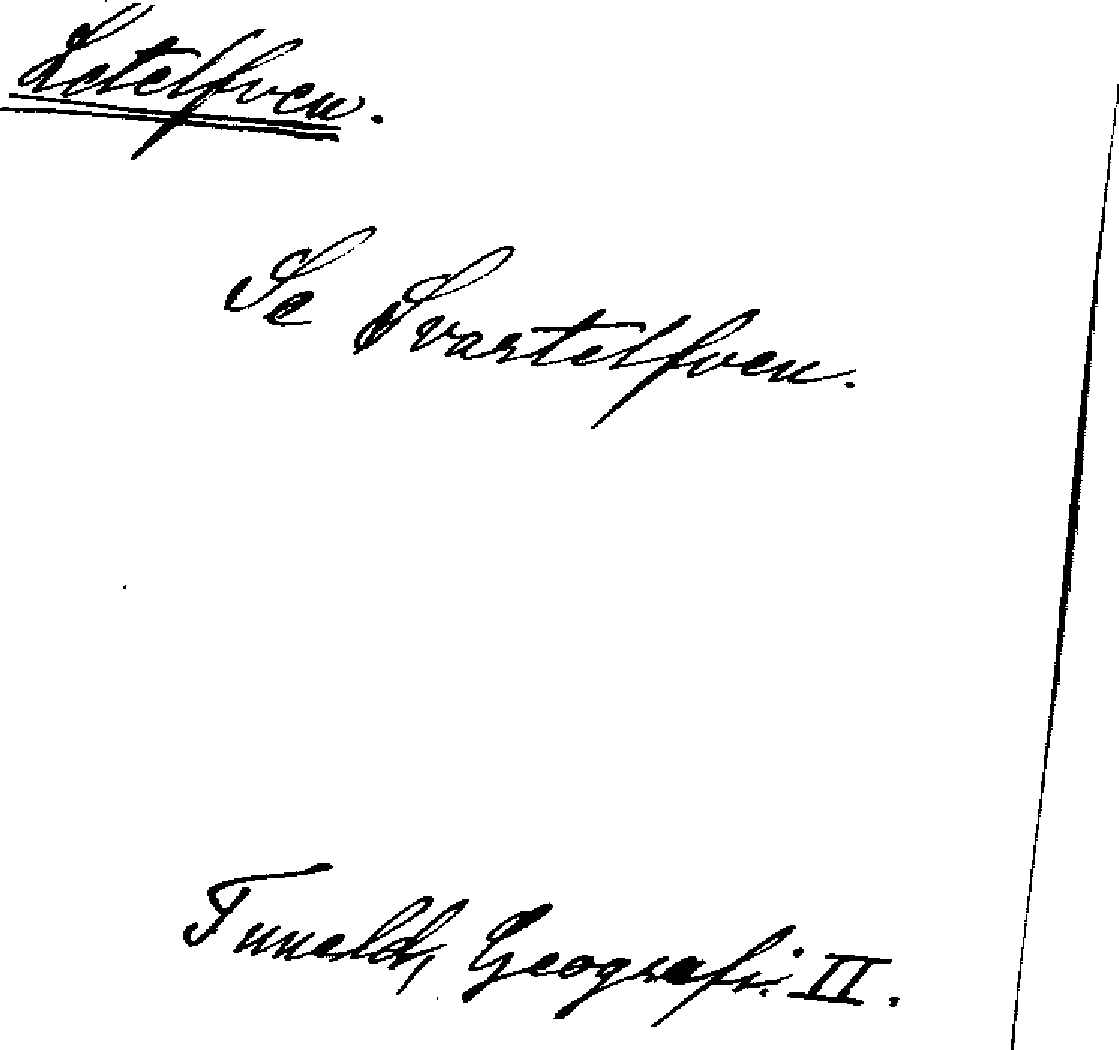 Letelfven.
Se Svartelfven.
Tuneld, Geografi. II.